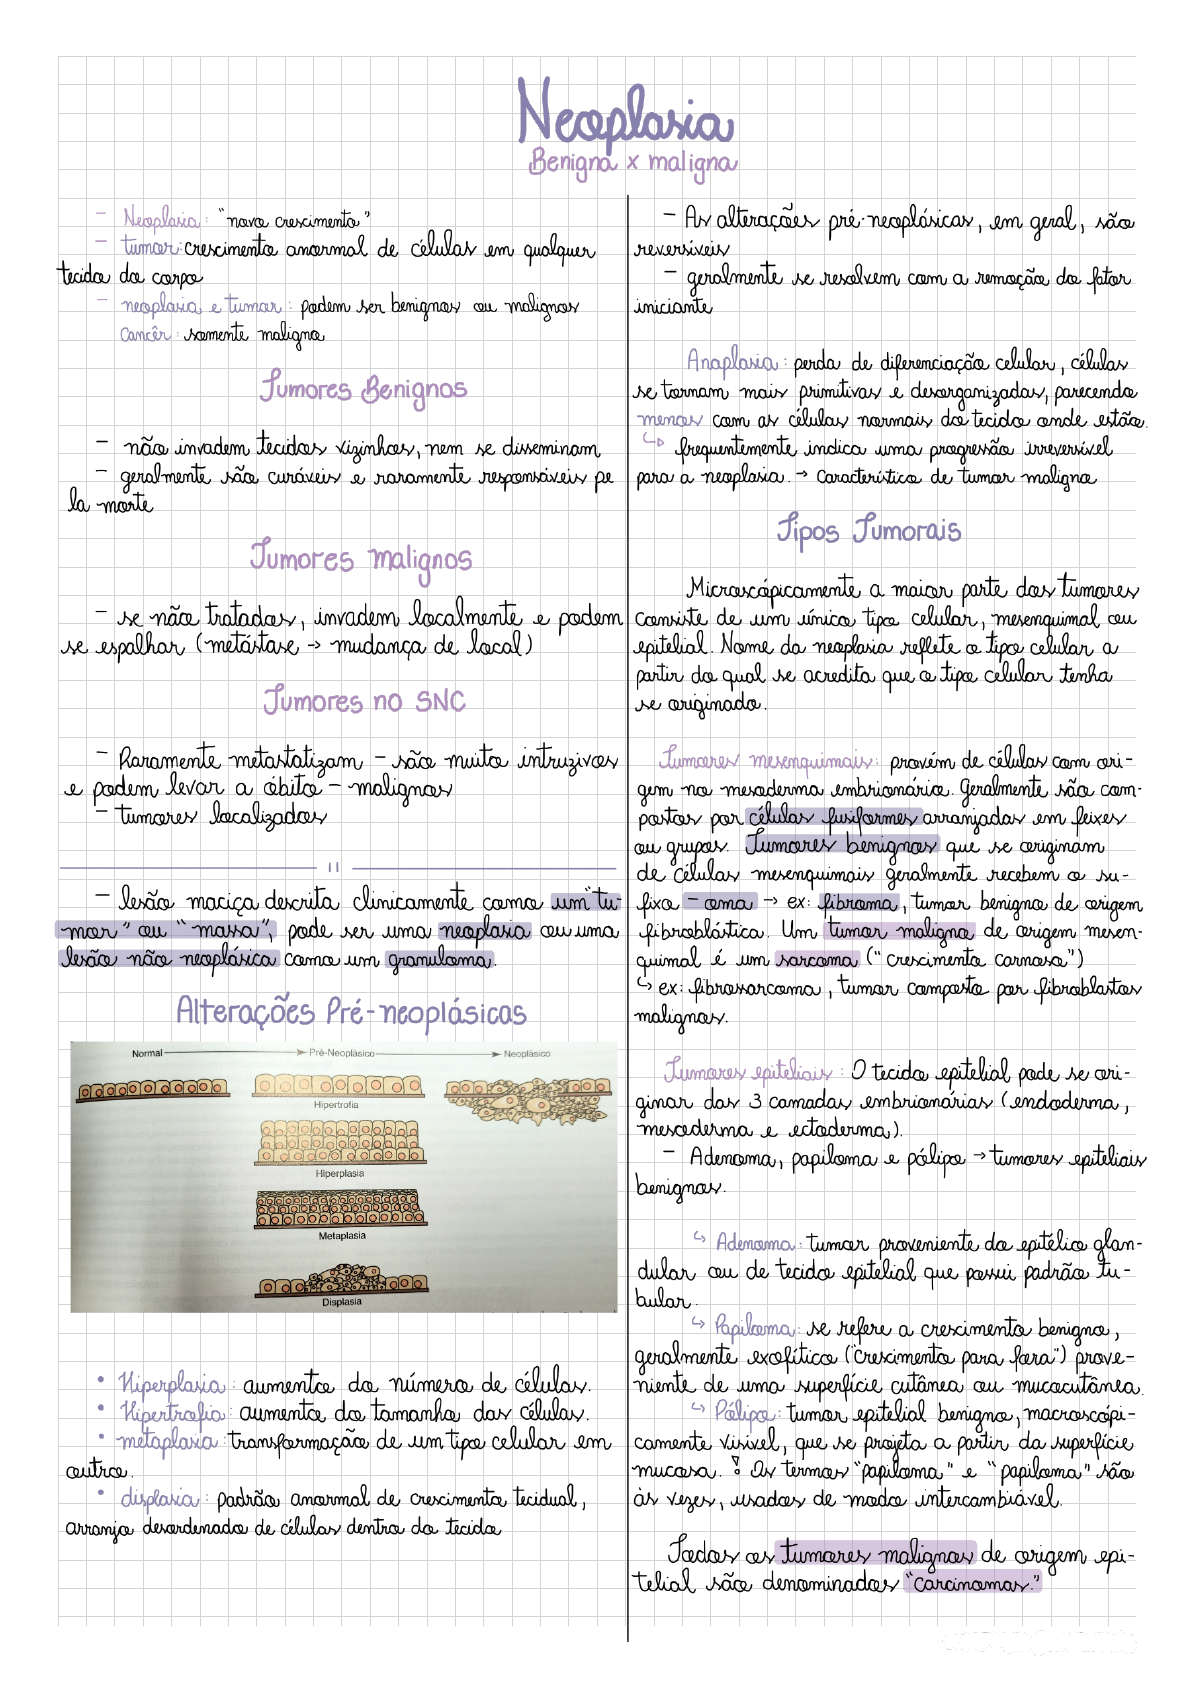 Neoplasia
Benigna x maligna
- Neoplasia: "novo crescimento"
- tumor: crescimento anormal de células em qualquer
tecido do corpo
- neoplasia e tumor: podem ser benignos ou malignos
Cancêr: somente maligno
Tumores Benignos
- não invadem tecidos vizinhos, nem se disseminam
- geralmente são curáveis e raramente responsáveis pe
la morte
Tumores malignos
- se não tratados, invadem localmente e podem
se espalhar (metástase → mudança de local)
Tumores no SNC
- Raramente metastatizam - são muito intruzivos
e podem levar a óbito - malignos
- tumores localizados
- lesão maciça descrita clinicamente como um "tu-
mor" ou "massa", pode ser uma neoplasia ou uma
lesão não neoplásica como um granuloma.
Alterações Pré-neoplásicas
Normal → Pré-Neoplásico → Neoplásico
Hipertrofia
Hiperplasia
Metaplasia
Displasia
• Hiperplasia: aumento do número de células.
• Hipertrofia: aumento do tamanho das células.
• metaplasia: transformação de um tipo celular em
outro.
• displasia: padrão anormal de crescimento tecidual,
arranjo desordenado de células dentro do tecido
- As alterações pré-neoplásicas, em geral, são
reversíveis
- geralmente se resolvem com a remoção do fator
iniciante
Anaplasia: perda de diferenciação celular, células
se tornam mais primitivas e desorganizadas, parecendo
menos com as células normais do tecido onde estão.
↳ frequentemente indica uma progressão irreversível
para a neoplasia. → Característico de tumor maligno
Tipos Tumorais
Microscópicamente a maior parte dos tumores
consiste de um único tipo celular, mesenquimal ou
epitelial. Nome da neoplasia reflete o tipo celular a
partir do qual se acredita que o tipo celular tenha
se originado.
Tumores mesenquimais: provém de células com ori-
gem no mesoderma embrionário. Geralmente são com-
postos por células fusiformes arranjadas em feixes
ou grupos. Tumores benignos que se originam
de células mesenquimais geralmente recebem o su-
fixo - oma → ex: fibroma, tumor benigno de origem
fibroblástica. Um tumor maligno de origem mesen-
quimal é um sarcoma ("crescimento carnoso")
↳ ex: fibrossarcoma, tumor composto por fibroblastos
malignos.
Tumores epiteliais: O tecido epitelial pode se ori-
ginar das 3 camadas embrionárias (endoderma,
mesoderma e ectoderma).
- Adenoma, papiloma e pólipo → tumores epiteliais
benignos.
↳ Adenoma: tumor proveniente do epitélio glan-
dular ou de tecido epitelial que possui padrão tu-
bular.
↳ Papiloma: se refere a crescimento benigno,
geralmente exofítico ("crescimento para fora") prove-
niente de uma superfície cutânea ou mucocutânea.
↳ Pólipo: tumor epitelial benigno, macroscópi-
camente visível, que se projeta a partir da superfície
mucosa. ! Os termos "papiloma" e "papiloma" são
às vezes, usados de modo intercambiável.
Todos os tumores malignos de origem epi-
telial são denominados "carcinomas."